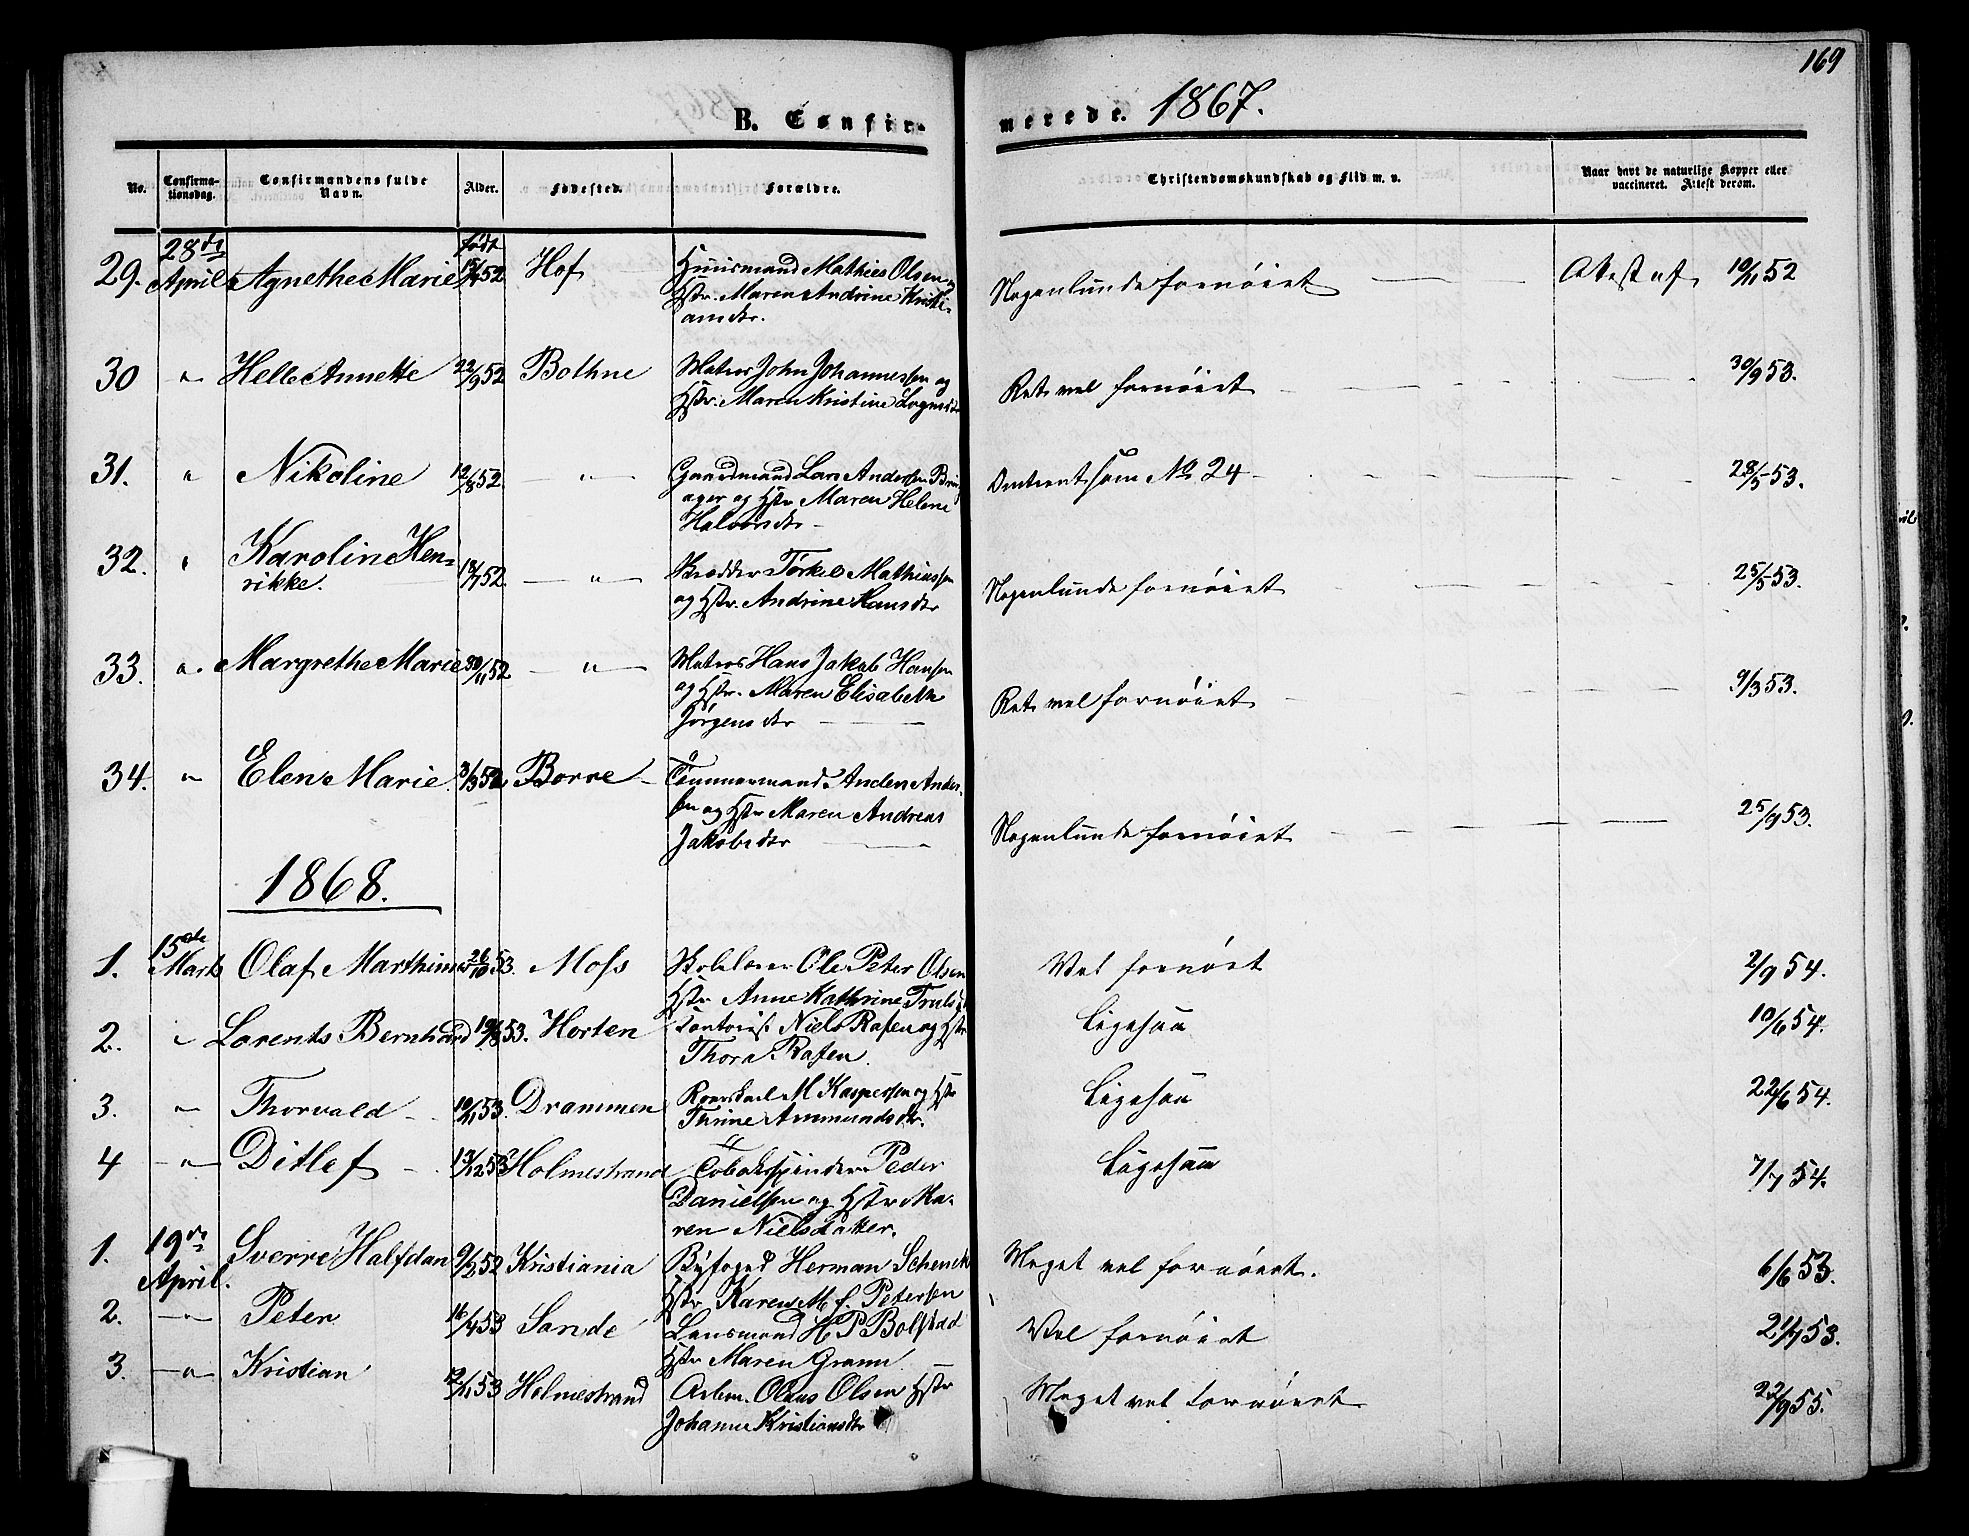 169
B. Confirmerede. 1867.
No. Confirmationsdag. Confirmandens fulde Navn. Alder. Fødested. Forældre. Christendomskundskab og Flid m. v. Naar havt de naturlige Kopper eller vaccineret. Attest derom.
29. 28de April Agnethe Marie født 52 Hof Huusmand Mathies Olsen og
Hstr. Maren Andrine Kristi-
ansdtr. Nogenlunde fornøiet Attest af 10/11 52
30 " Helle Annette 22/9 52 Bothne Matros John Johannessen og
Hstr. Maren Kristine Ret vel fornøiet 30/9 53.
31. " Nikoline 12/8 52 " Gaardmand Lars Andersen
ager og Hstr Maren Helene
Halvorsdtr Omtrent som No 24 28/5 53.
32. " Karoline Hen-
rikke. 18/7 52 " Skrædder Torkel Mathiassen
og Hstr. Andrine Hansdtr Nogenlunde fornøiet 25/5 53.
33. " Margrethe Marie 30/11 52 " Matros Hans Jakob Hansen
og Hstr. Maren Elisabeth
Jörgensdtr Ret vel fornøiet 9/3 53.
34. " Elen Marie 3/9 52 Borre Tömmermand Anders Ander-
sen og Hstr Maren Andrea
Jakobsdtr Nogenlunde fornøiet 25/9 53.
1868.
1. 15de Marts Olaf Marthinius 26/10 53. Moss Skolelærer Ole Peter Olsen
Hstr Anne Kathrine Vel fornøiet 2/9 54.
2. " Lorents Bernhard 19/8 53. Horten Kontorist Niels Rasen og Hstr
Thora Rasen. Ligesaa 10/6 54.
3. " Thorvald 10/11 53. Drammen M Kaspersen og Hstr
Thrine Ammundsdtr. Ligesaa 22/6 54.
4 " Ditlef 13/12 53 Holmestrand Tobakspinder Peder
Danielsen og Hstr Ma-
ren Nielsdatter. Ligesaa 7/7 54.
1. 19de April. Sverre Halfdan 9/2 52 Kristiania Byfoged Herman Schenck
Hstr Karen M. f. Petersen Meget vel fornøiet. 6/6 53.
2. " Peter 16/4 53 Sande Lensmand H P Bolstad
Hstr Maren Gramn Vel fornøiet 21/7 53.
3. " Kristian 53 Holmestrand Arbm. Olaus Olsen Hstr
Johanne Kristiansdtr Meget vel fornøiet 22/9 55.